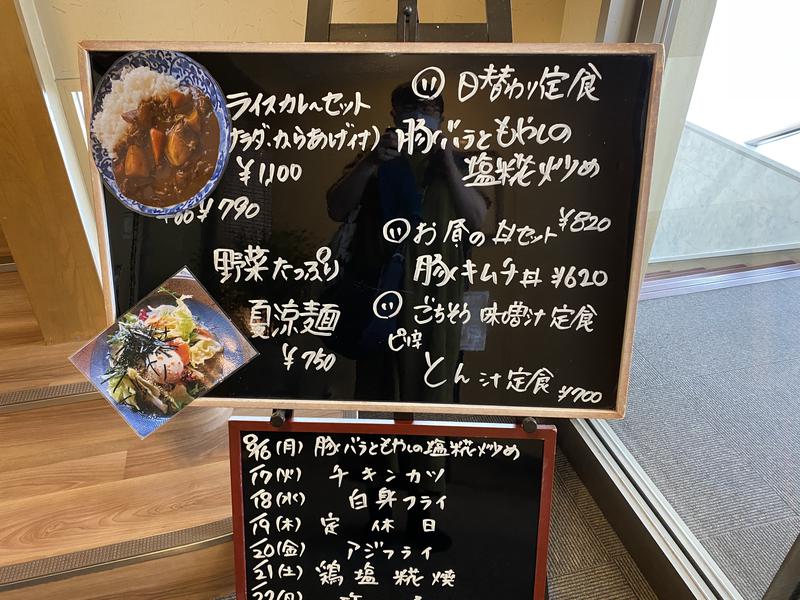 ライスカレーセット
(サラダ、からあげ付)
¥1,100
¥790
野菜たっぷり
夏涼麺
¥750
(い) 日替わり定食
豚バラともやしの
塩糀炒め
¥820
(い) お昼の丼セット
豚キムチ丼 ¥620
(い) ごちそう味噌汁定食
ピ辛
とん汁定食
¥700
8/16(月) 豚バラともやしの塩糀炒め
17(火) チキンカツ
18(水) 白身フライ
19(木) 定休日
20(金) アジフライ
21(土) 鶏塩糀焼